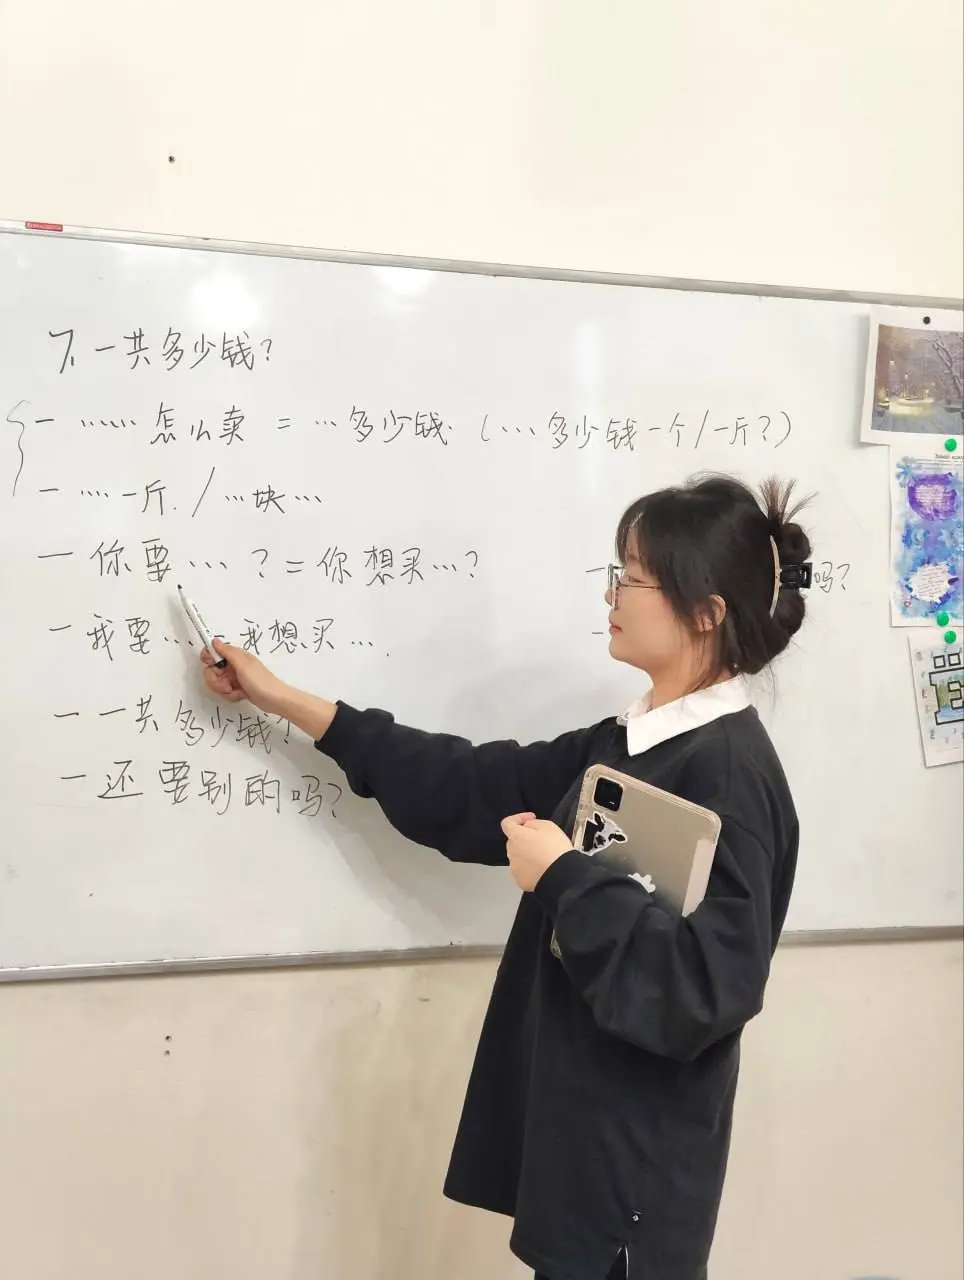 7. 一共多少钱?
一 …… 怎么卖 = …多少钱. (…多少钱一个/一斤?)
一 …. 一斤. / …块…
一 你要…? = 你想买…?
一
吗?
一 我要… 我想买….
一
一 一共多少钱?
一 还要别的吗?